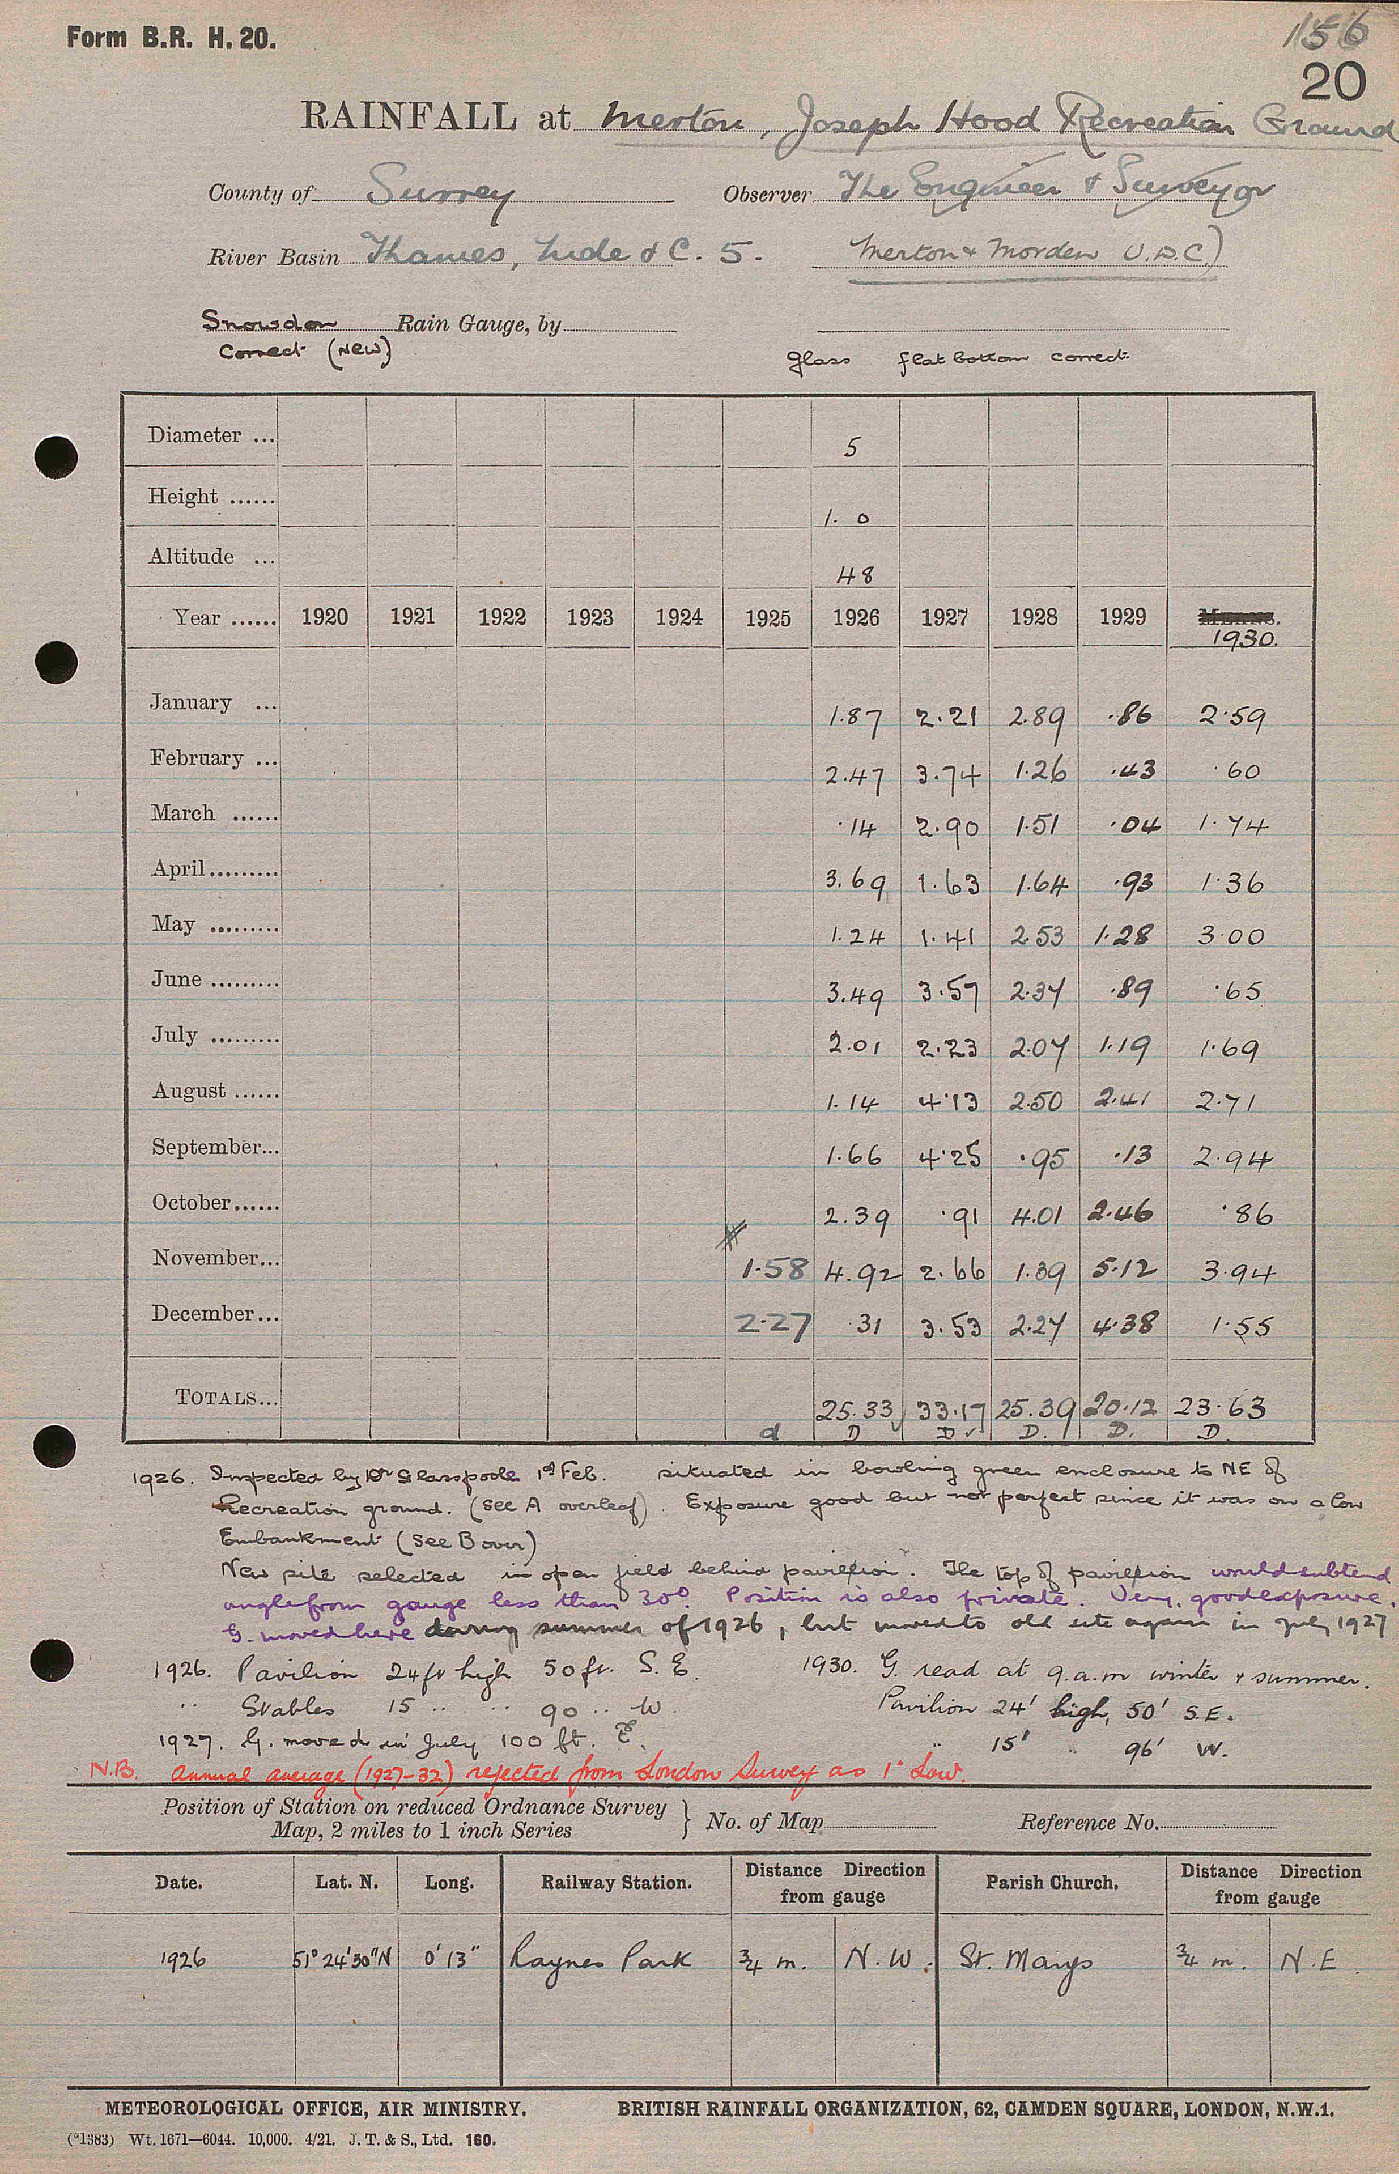 Form B.R. H. 20.
156
20
RAINFALL at Merton, Joseph Hood Recreation Ground
County of Surrey Observer The Engineer & Surveyor
River Basin Thames, Lude & C. 5. Merton & Morden U.D.C)
Snowsdon Rain Gauge, by
Correct (New)
glass flat bottom correct
Diameter ... 5
Height ...... 1. 0
Altitude ... 48
Year ...... 1920 1921 1922 1923 1924 1925 1926 1927 1928 1929 1930.
January ... 1.87 2.21 2.89 .86 2.59
February ... 2.47 3.74 1.26 .43 .60
March ...... .14 2.90 1.51 .04 1.74
April......... 3.69 1.63 1.64 .93 1.36
May ......... 1.24 1.41 2.53 1.28 3.00
June ......... 3.49 3.57 2.37 .89 .65
July ......... 2.01 2.23 2.07 1.19 1.69
August ...... 1.14 4.13 2.50 2.41 2.71
September... 1.66 4.25 .95 .13 2.94
October...... 2.39 .91 4.01 2.46 .86
November... 1.58 4.92 2.66 1.39 5.12 3.94
December... 2.27 .31 3.53 2.27 4.38 1.55
TOTALS... 25.33 33.17 25.39 20.12 23.63
d D D D. D. D.
1926. Inspected by Dr Glasspoole 1st Feb. situated in bowling green enclosure to NE of
Recreation ground. (see A overleaf). Exposure good but not perfect since it was on a low
Embankment (see B over)
New site selected in open field behind pavillion. The top of pavillion would subtend
angle from gauge less than 30°. Position is also private. Very good exposure.
G. moved here during summer of 1926, but moved to old site again in July 1927
1926. Pavilion 24 ft high 50 ft. S.E.
" Stables 15 " " 90 " W.
1927. G. moved in July 100 ft. E.
1930. G. read at 9. a.m winter & summer.
Pavilion 24' high, 50' S.E.
" 15' " 96' W.
N.B. Annual average (1927-32) rejected from London Survey as 1" Low.
Position of Station on reduced Ordnance Survey
Map, 2 miles to 1 inch Series } No. of Map Reference No.
Date. Lat. N. Long. Railway Station. Distance Direction from gauge Parish Church. Distance Direction from gauge
1926 51° 24' 30" N 0' 13" Raynes Park ¾ m. N.W. St. Marys ¾ m. N.E.
METEOROLOGICAL OFFICE, AIR MINISTRY. BRITISH RAINFALL ORGANIZATION, 62, CAMDEN SQUARE, LONDON, N.W.1.
(*1383) Wt. 1671—6044. 10,000. 4/21. J. T. & S., Ltd. 160.